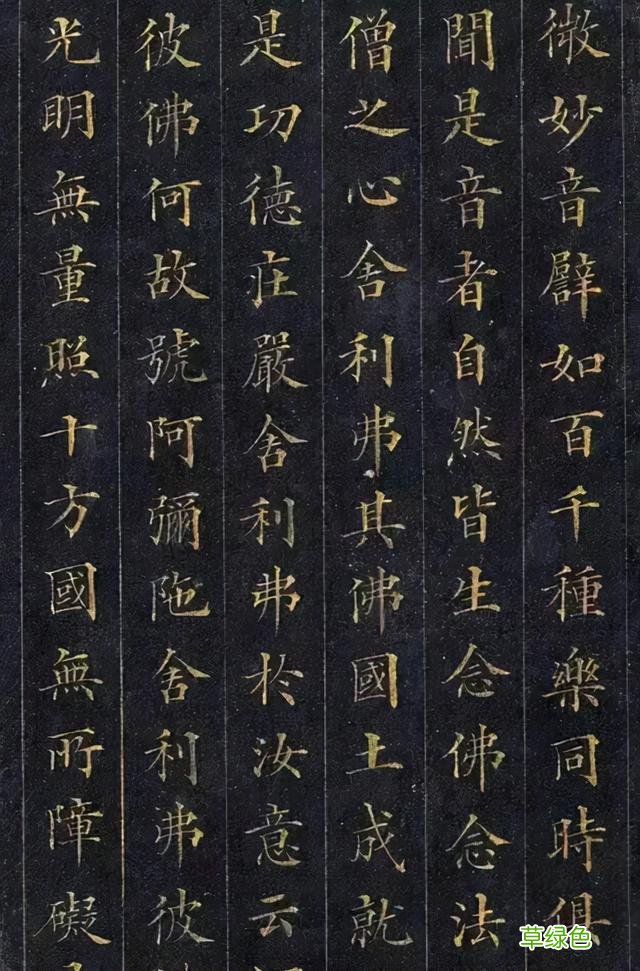 微妙音譬如百千種樂同時俱
聞是音者自然皆生念佛念法
僧之心舍利弗其佛國土成就
是功德莊嚴舍利弗於汝意云
彼佛何故號阿彌陁舍利弗彼
光明無量照十方國無所障礙
草绿色